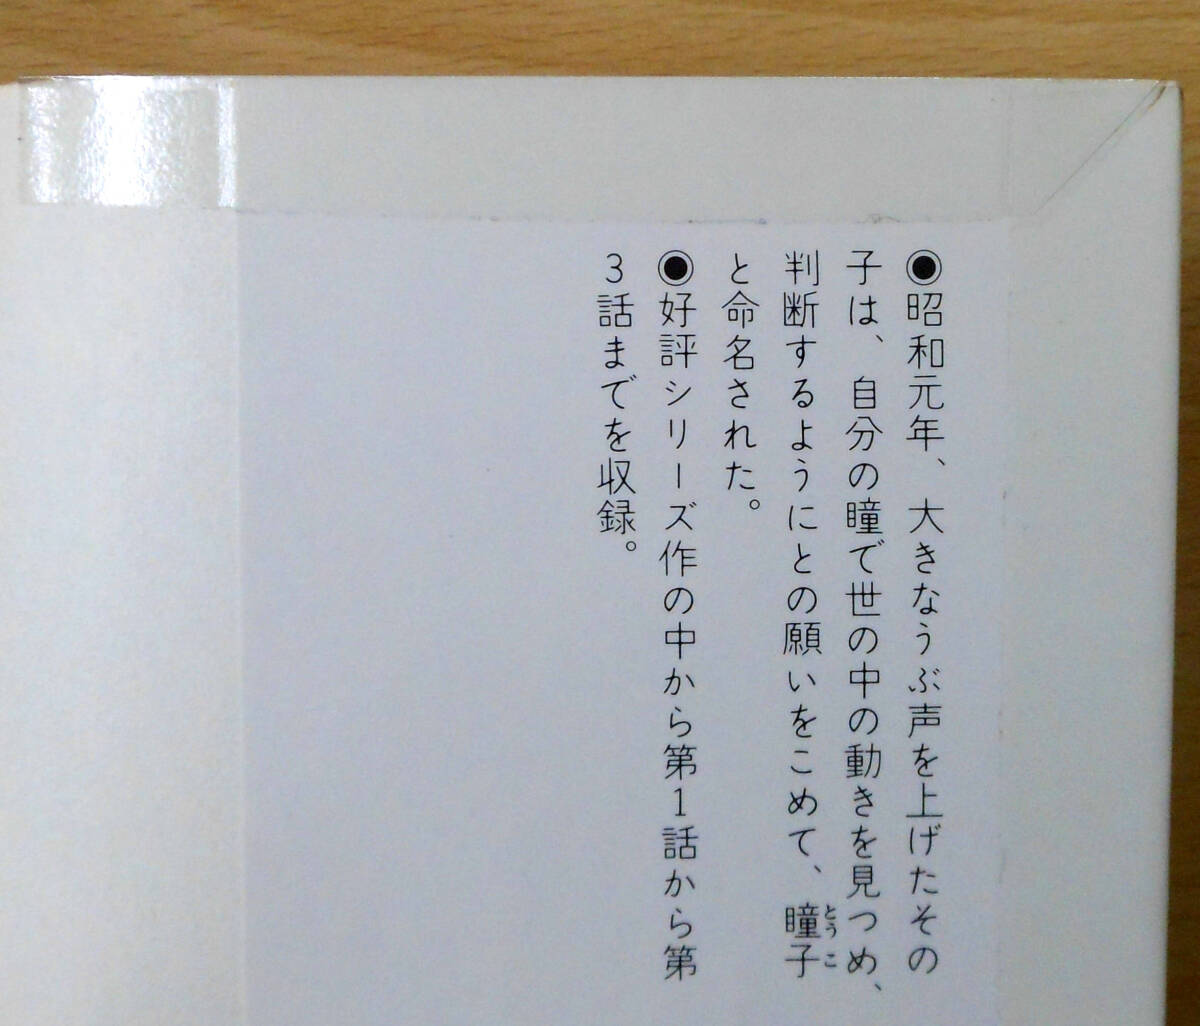 ◉昭和元年、大きなうぶ声を上げたその
子は、自分の瞳で世の中の動きを見つめ、
判断するようにとの願いをこめて、瞳子
とうこ
と命名された。
◉好評シリーズ作の中から第1話から第
3話までを収録。